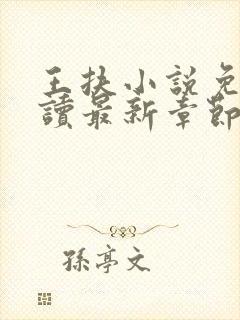 王扶小說免
讀最新章節
孫亭文